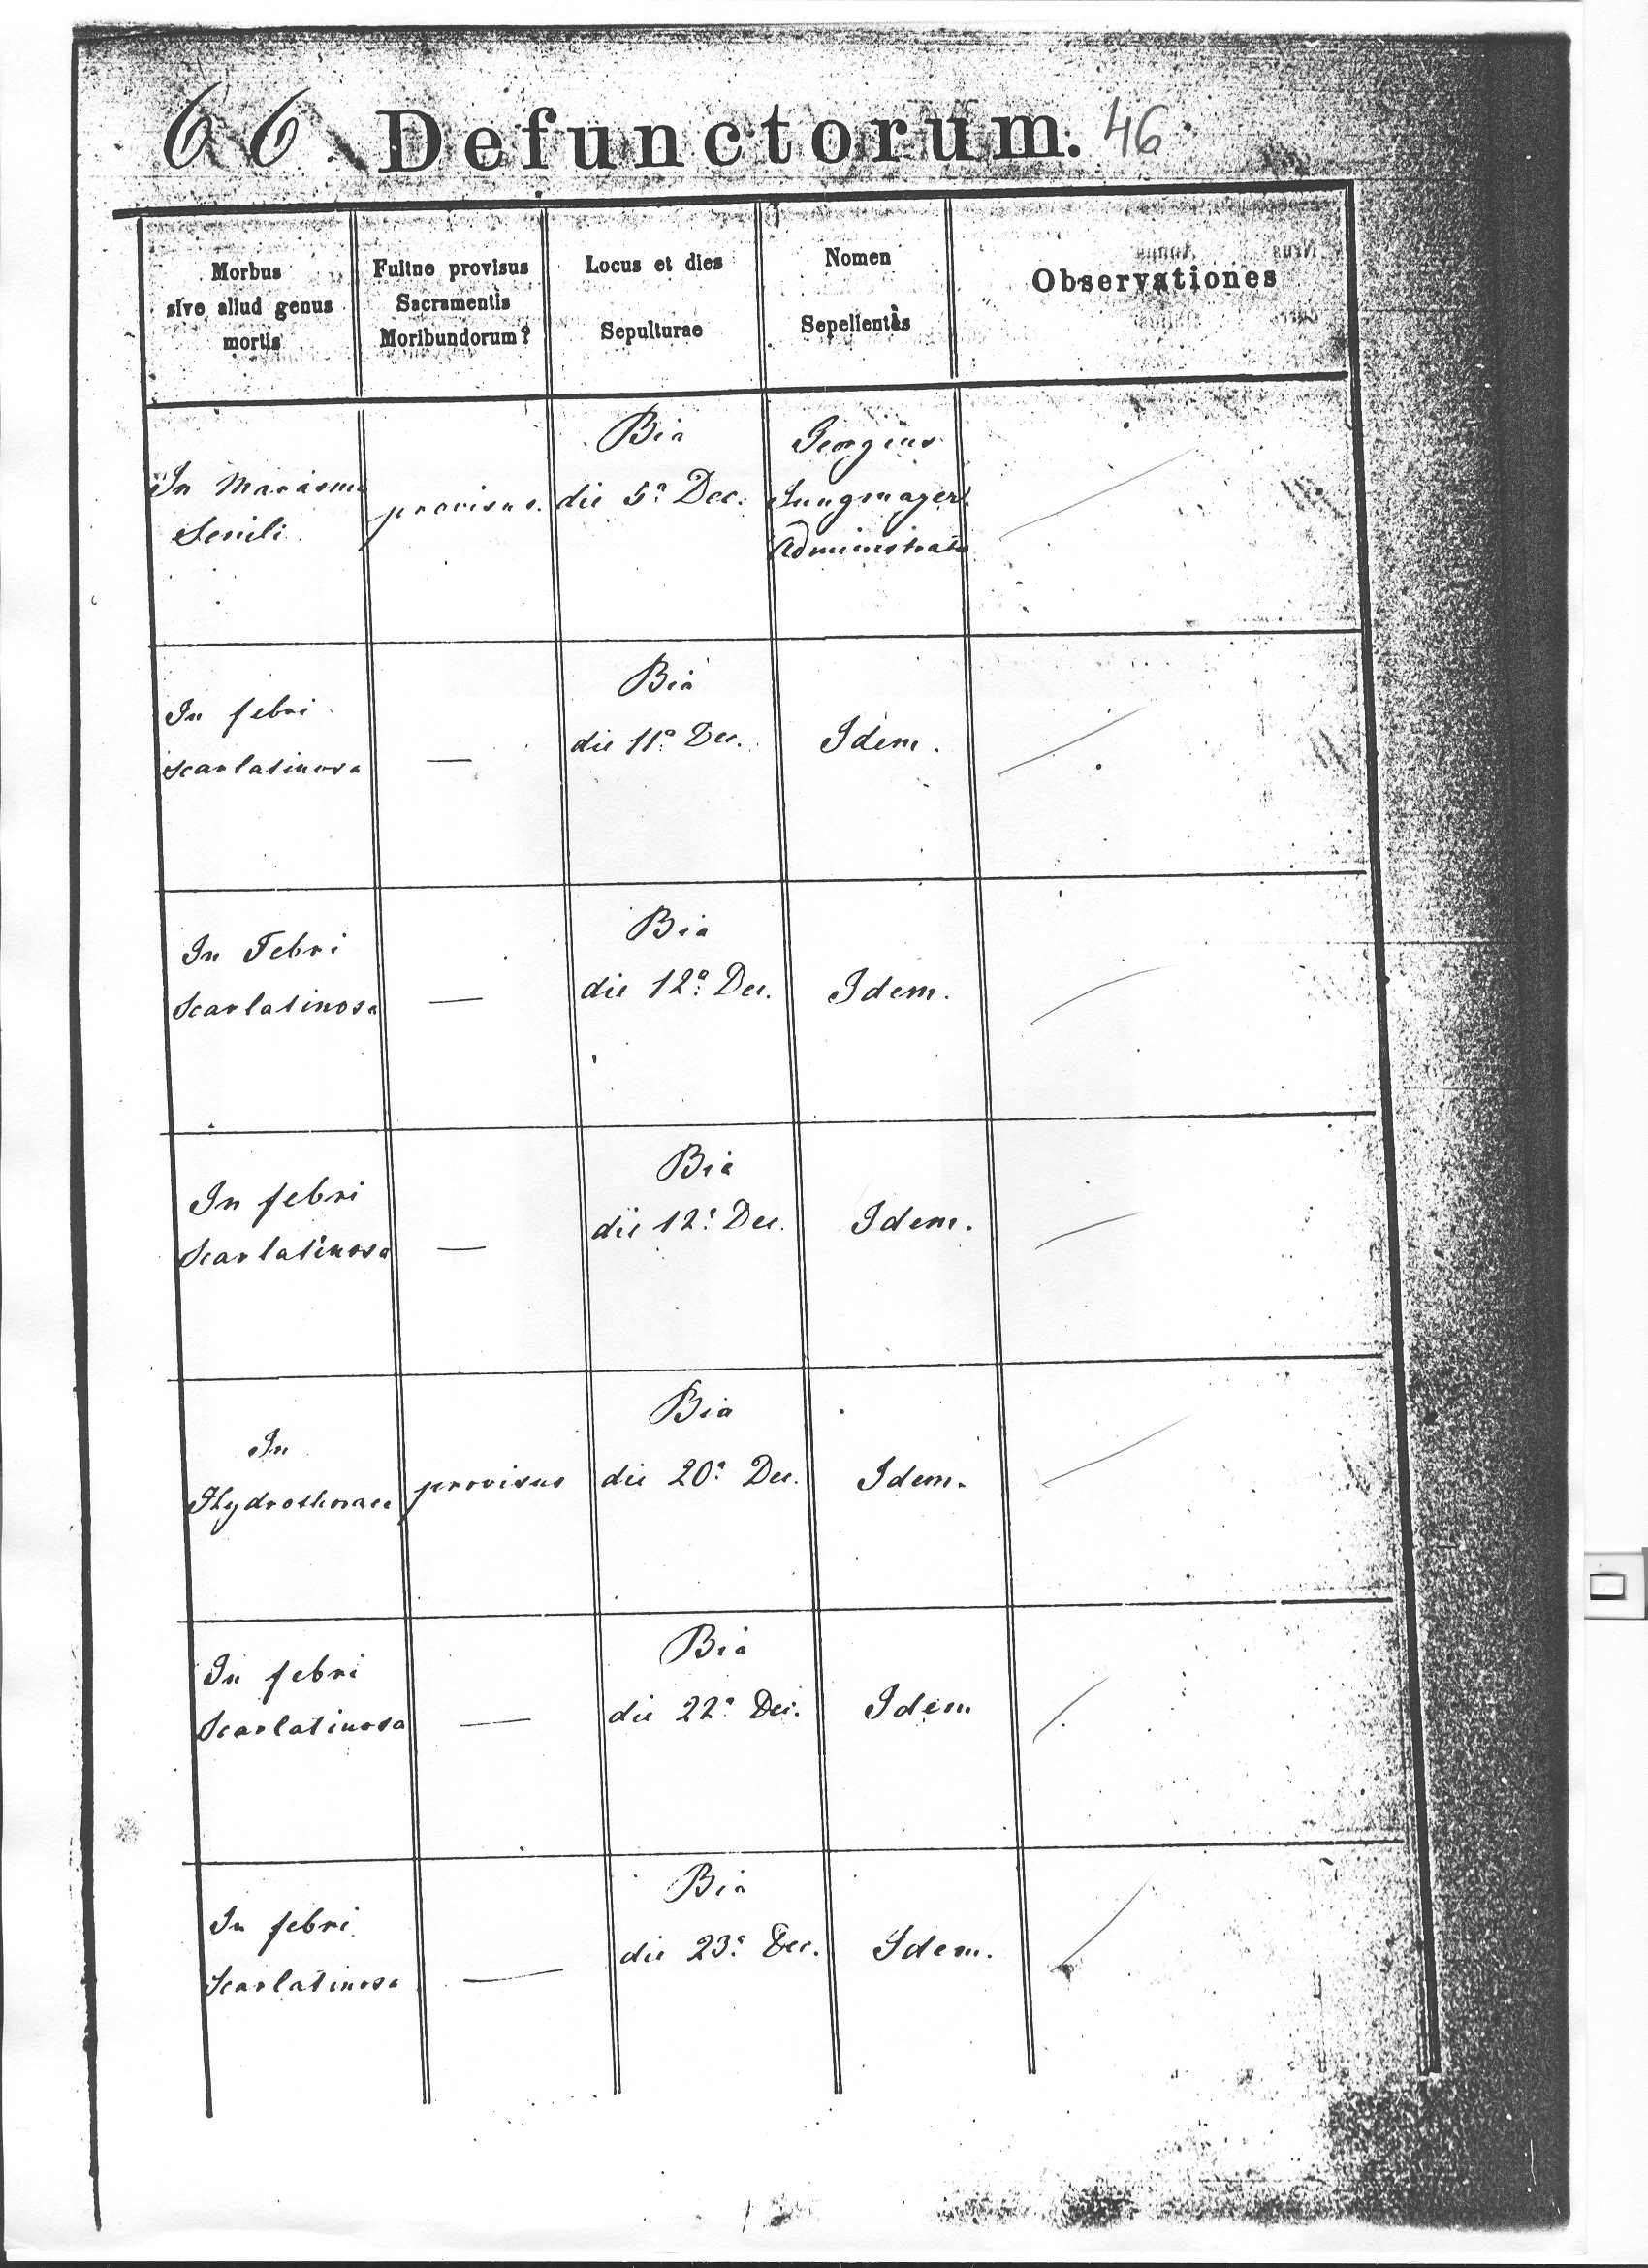 66 Defunctorum. 46
Morbus
sive aliud genus
mortis
Fuitne provisus
Sacramentis
Moribundorum?
Locus et dies
Sepulturae
Nomen
Sepelientis
Observationes
In Marasmo
Senili.
provisus.
Bia
die 5a Dec.
Georgius
Jungmayer
Administrator
In febri
scarlatinosa
—
Bia
die 11a Dec.
Idem.
In Febri
Scarlatinosa
—
Bia
die 12a Dec.
Idem.
In febri
Scarlatinosa
—
Bia
die 12a Dec.
Idem.
In
Hydrothorace
provisus
Bia
die 20a Dec.
Idem.
In febri
Scarlatinosa
—
Bia
die 22a Dec.
Idem
In febri
Scarlatinosa
—
Bia
die 23a Dec.
Idem.